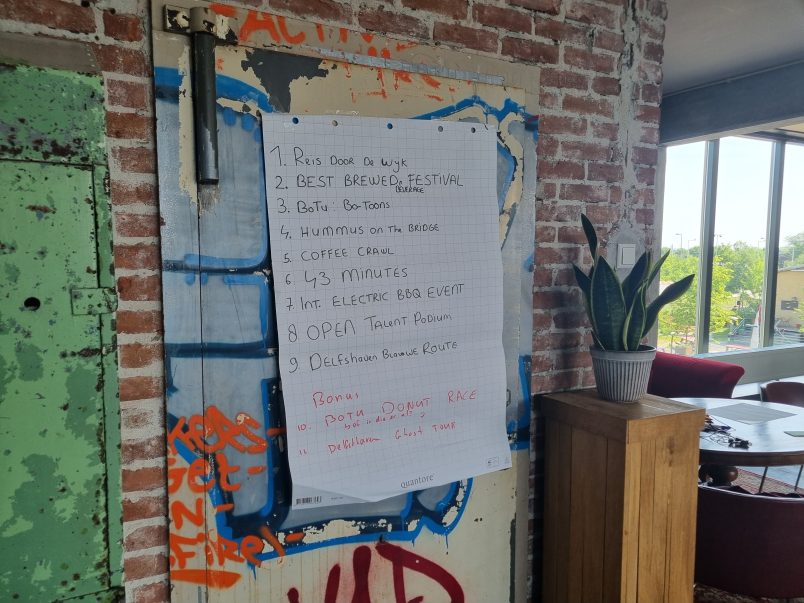 ACTI
1. REIS DOOR DE WYK
2. BEST BREWED FESTIVAL
BEVERAGE
3. BOTU: BO-TOONS
4. HUMMUS ON THE BRIDGE
5. COFFEE CRAWL
6 43 MINUTES
7 INT. ELECTRIC BBQ EVENT
8 OPEN TALENT PODIUM
9 DELFSHAVEN BLAUWE ROUTE
Bonus
10. BOTU DONUT RACE
11. Delfshaven Ghost TOUR
quantore